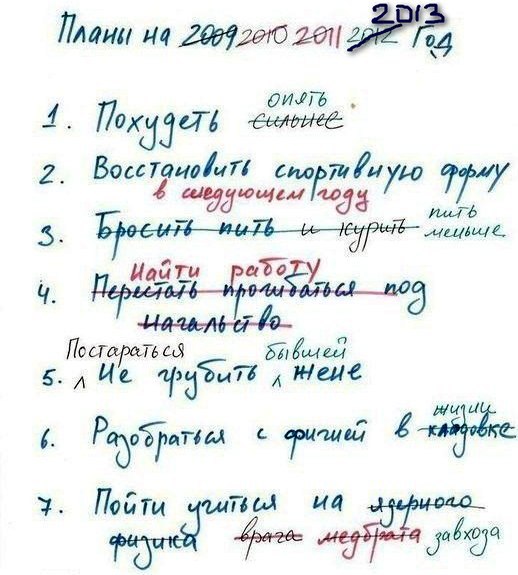 2013
Планы на 2009 2010 2011 2012 Год
опять
1. Похудеть сильнее
2. Восстановить спортивную форму
в следующем году
3. Бросить пить и курить пить меньше
Найти работу
4. Перестать прогибаться под
начальство
Постараться бывшей
5. Не грубить жене
жизни
6. Разобраться с фигнёй в кладовке
7. Пойти учиться на ядерного
физика врача медбрата завхоза